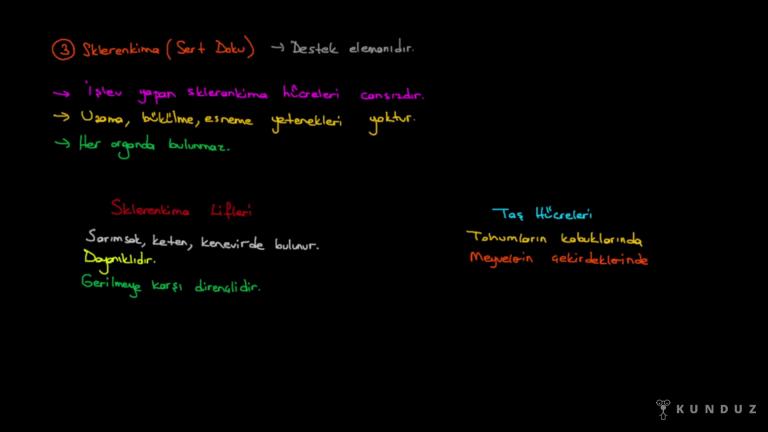 ③ Sklerenkima (Sert Doku) → Destek elemanıdır.
→ İşlev yapan sklerankima hücreleri cansızdır.
→ Uzama, bükülme, esneme yetenekleri yoktur.
→ Her organda bulunmaz.
Sklerenkima Lifleri
Sarımsak, keten, kenevirde bulunur.
Dayanıklıdır.
Gerilmeye karşı dirençlidir.
Taş Hücreleri
Tohumların kabuklarında
Meyvelerin çekirdeklerinde
KUNDUZ